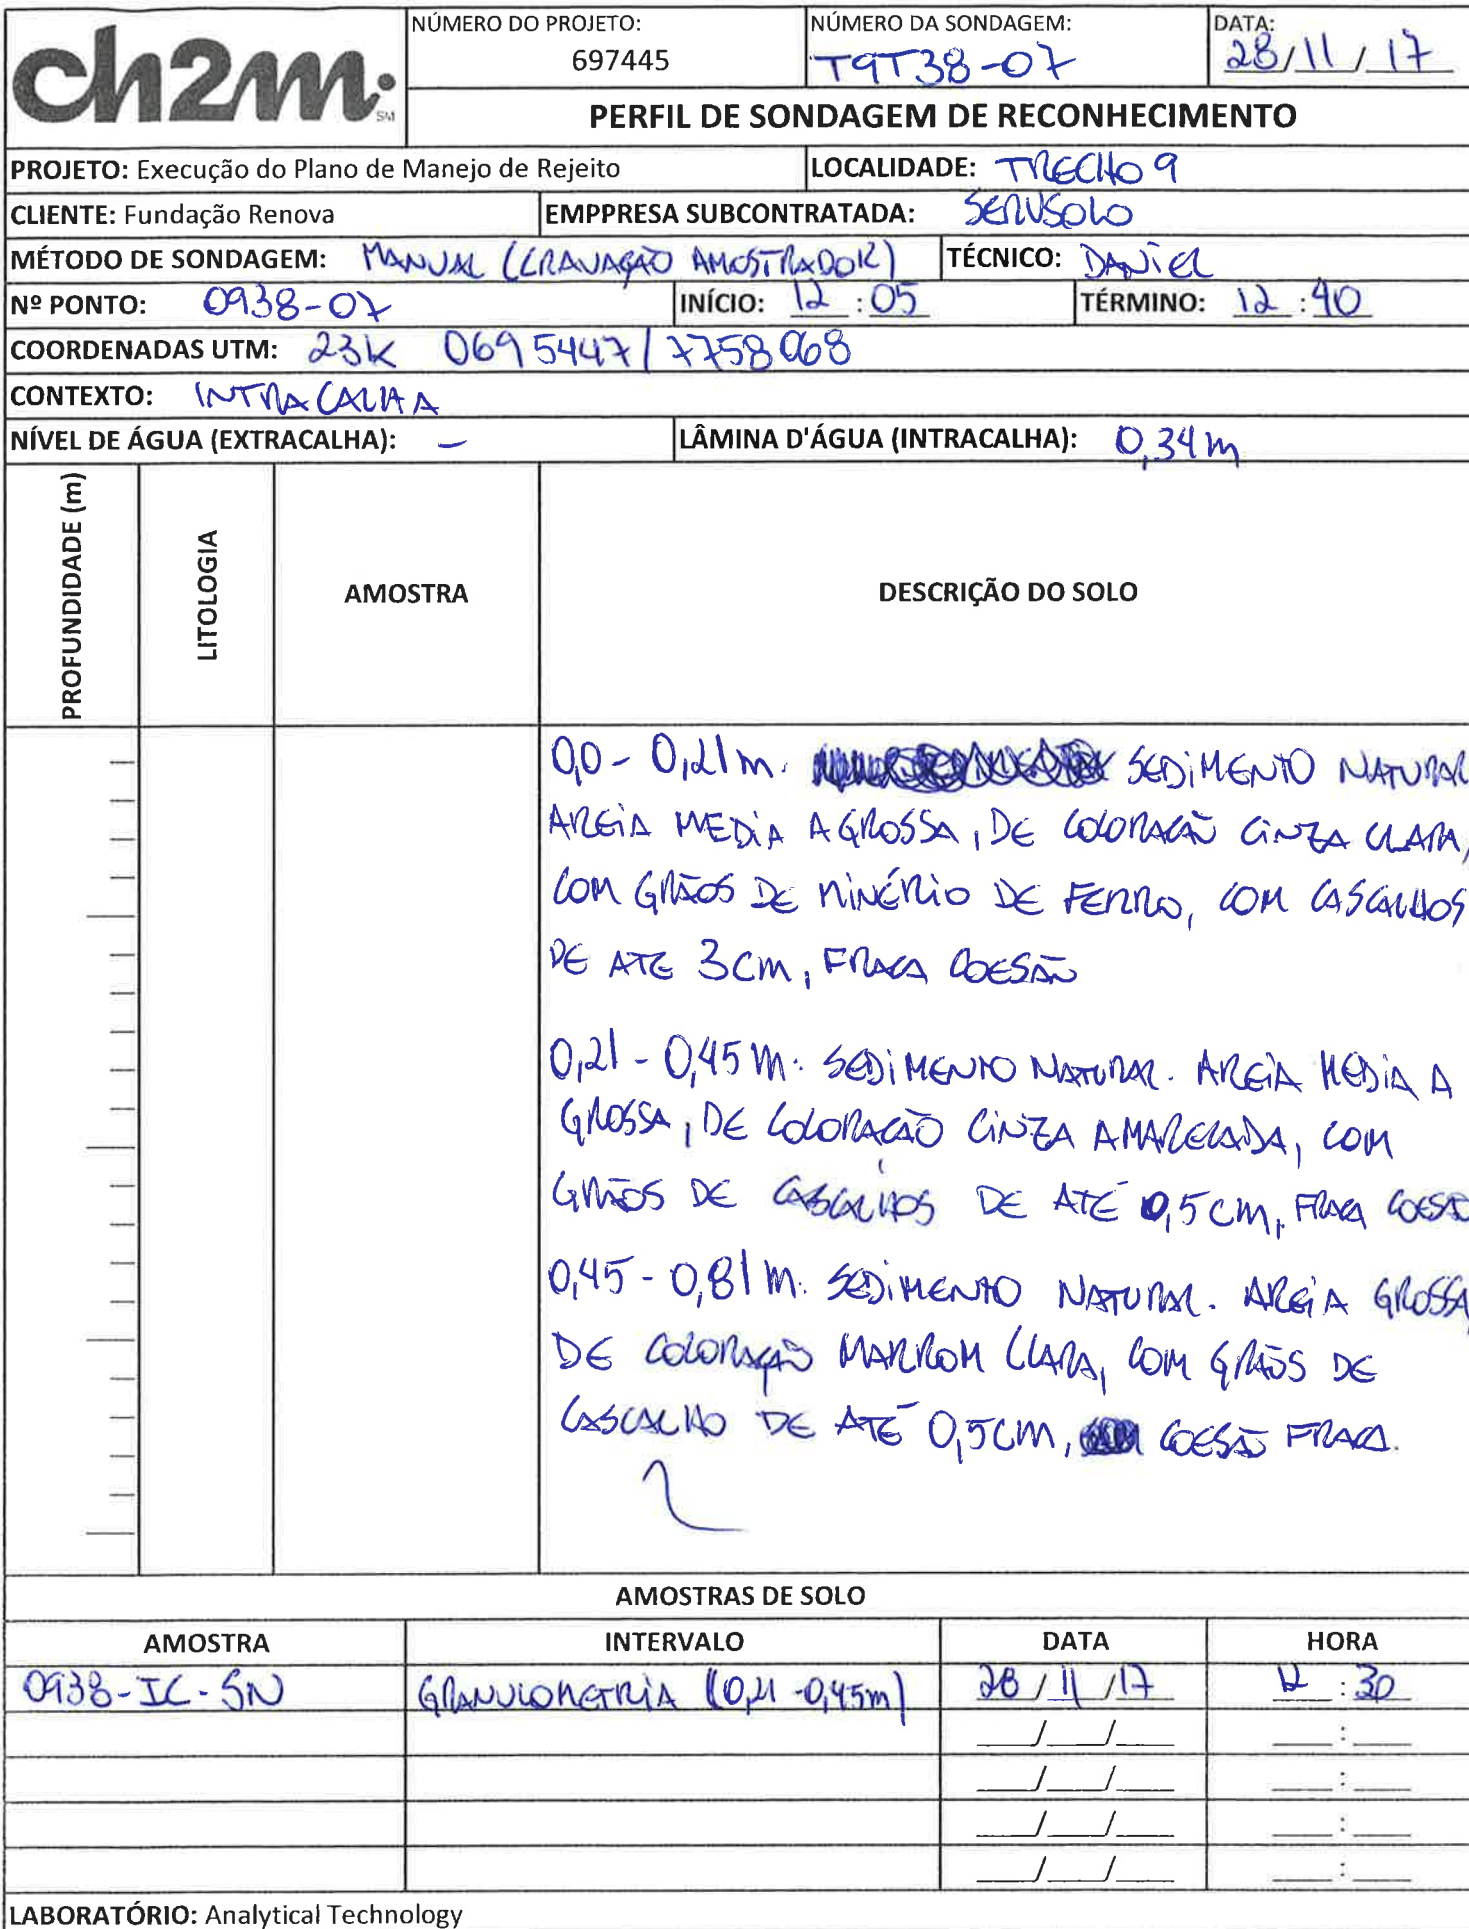 ch2m: SM
NÚMERO DO PROJETO:
697445
NÚMERO DA SONDAGEM:
T9T38-07
DATA:
28/11/17
PERFIL DE SONDAGEM DE RECONHECIMENTO
PROJETO: Execução do Plano de Manejo de Rejeito
LOCALIDADE: TRECHO 9
CLIENTE: Fundação Renova
EMPPRESA SUBCONTRATADA: SERVSOLO
MÉTODO DE SONDAGEM: MANUAL (CRAVAÇÃO AMOSTRADOR)
TÉCNICO: DANIEL
Nº PONTO: 0938-07
INÍCIO: 12:05
TÉRMINO: 12:40
COORDENADAS UTM: 23K 0695447/7758068
CONTEXTO: INTRACALHA
NÍVEL DE ÁGUA (EXTRACALHA): -
LÂMINA D'ÁGUA (INTRACALHA): 0,34m
PROFUNDIDADE (m)
LITOLOGIA
AMOSTRA
DESCRIÇÃO DO SOLO
0,0 - 0,21m: SEDIMENTO NATURAL
AREIA MEDIA A GROSSA, DE COLORAÇÃO CINZA CLARA,
COM GRÃOS DE MINÉRIO DE FERRO, COM CASCALHOS
DE ATE 3cm, FRACA COESÃO
0,21 - 0,45m: SEDIMENTO NATURAL. AREIA MEDIA A
GROSSA, DE COLORAÇÃO CINZA AMARELADA, COM
GRÃOS DE CASCALHOS DE ATÉ 0,5cm, FRACA COESÃO
0,45 - 0,81m: SEDIMENTO NATURAL. AREIA GROSSA,
DE COLORAÇÃO MARROM CLARA, COM GRÃOS DE
CASCALHO DE ATÉ 0,5cm, COESÃO FRACA.
AMOSTRAS DE SOLO
AMOSTRA
INTERVALO
DATA
HORA
0938-IC-SN
GRANULOMETRIA (0,21-0,45m)
28/11/17
12:30
___/___/___ ___:___
___/___/___ ___:___
___/___/___ ___:___
___/___/___ ___:___
LABORATÓRIO: Analytical Technology